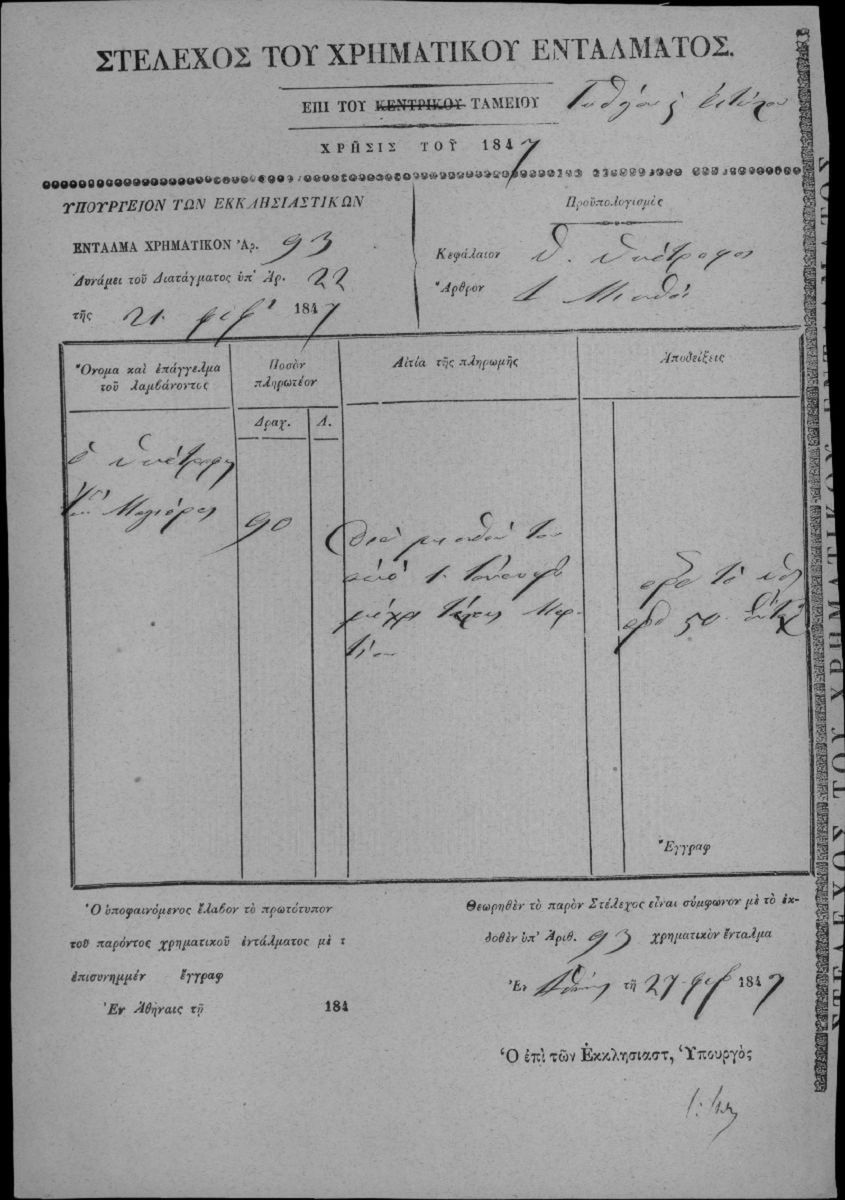 ΣΤΕΛΕΧΟΣ ΤΟΥ ΧΡΗΜΑΤΙΚΟΥ ΕΝΤΑΛΜΑΤΟΣ.
ΕΠΙ ΤΟΥ ΚΕΝΤΡΙΚΟΥ ΤΑΜΕΙΟΥ
ΧΡΗΣΙΣ ΤΟΥ 1847
ΥΠΟΥΡΓΕΙΟΝ ΤΩΝ ΕΚΚΛΗΣΙΑΣΤΙΚΩΝ
ΕΝΤΑΛΜΑ ΧΡΗΜΑΤΙΚΟΝ Ἀρ. 93
Δυνάμει τοῦ Διατάγματος ὑπ' Ἀρ. 22
τῆς 21 φεβ 1847
Προϋπολογισμὸς
Κεφάλαιον Θ. Ὑπότροφοι
Ἄρθρον 1 Μισθοὶ
Ὄνομα καὶ ἐπάγγελμα
τοῦ λαμβάνοντος
Ποσὸν
πληρωτέον
Αἰτία τῆς πληρωμῆς
Ἀποδείξεις
Δραχ. Λ.
ὁ ὑπότροφος
90
διὰ μισθόν του
ἀπὸ 1 Ἰανουαρ
μέχρι τέλους Μαρ-
τίου
50
Ἔγγραφ
Ὁ ὑποφαινόμενος ἔλαβον τὸ πρωτότυπον
τοῦ παρόντος χρηματικοῦ ἐντάλματος μὲ τ
ἐπισυνημμέν ἔγγραφ
Ἐν Ἀθήναις τῇ 184
Θεωρηθὲν τὸ παρὸν Στέλεχος εἶναι σύμφωνον μὲ τὸ ἐκ-
δοθὲν ὑπ' Ἀριθ. 93 χρηματικὸν ἔνταλμα
Ἐν Ἀθήναις τῇ 27 φεβ 1847
Ὁ ἐπὶ τῶν Ἐκκλησιαστ, Ὑπουργὸς